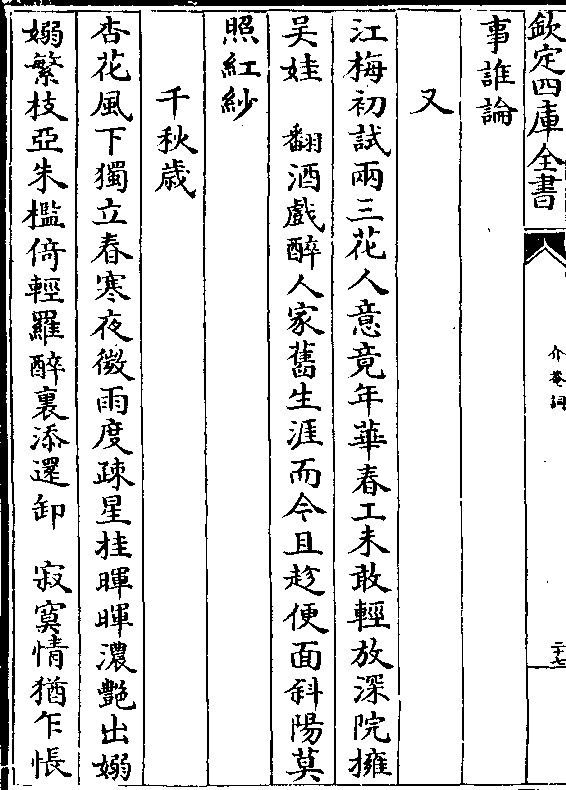 欽定四庫全書
介菴詞
二十七
事誰論
又
江梅初試兩三花人意竟年華春工未敢輕放深院擁
吴娃　翻酒戲醉人家舊生涯而今且趁便面斜陽莫
照紅紗
千秋歲
杏花風下獨立春寒夜微雨度疎星挂暉暉濃艶出嫋
嫋繁枝亞朱檻倚輕羅醉裏添還卸　寂寞情猶乍悵